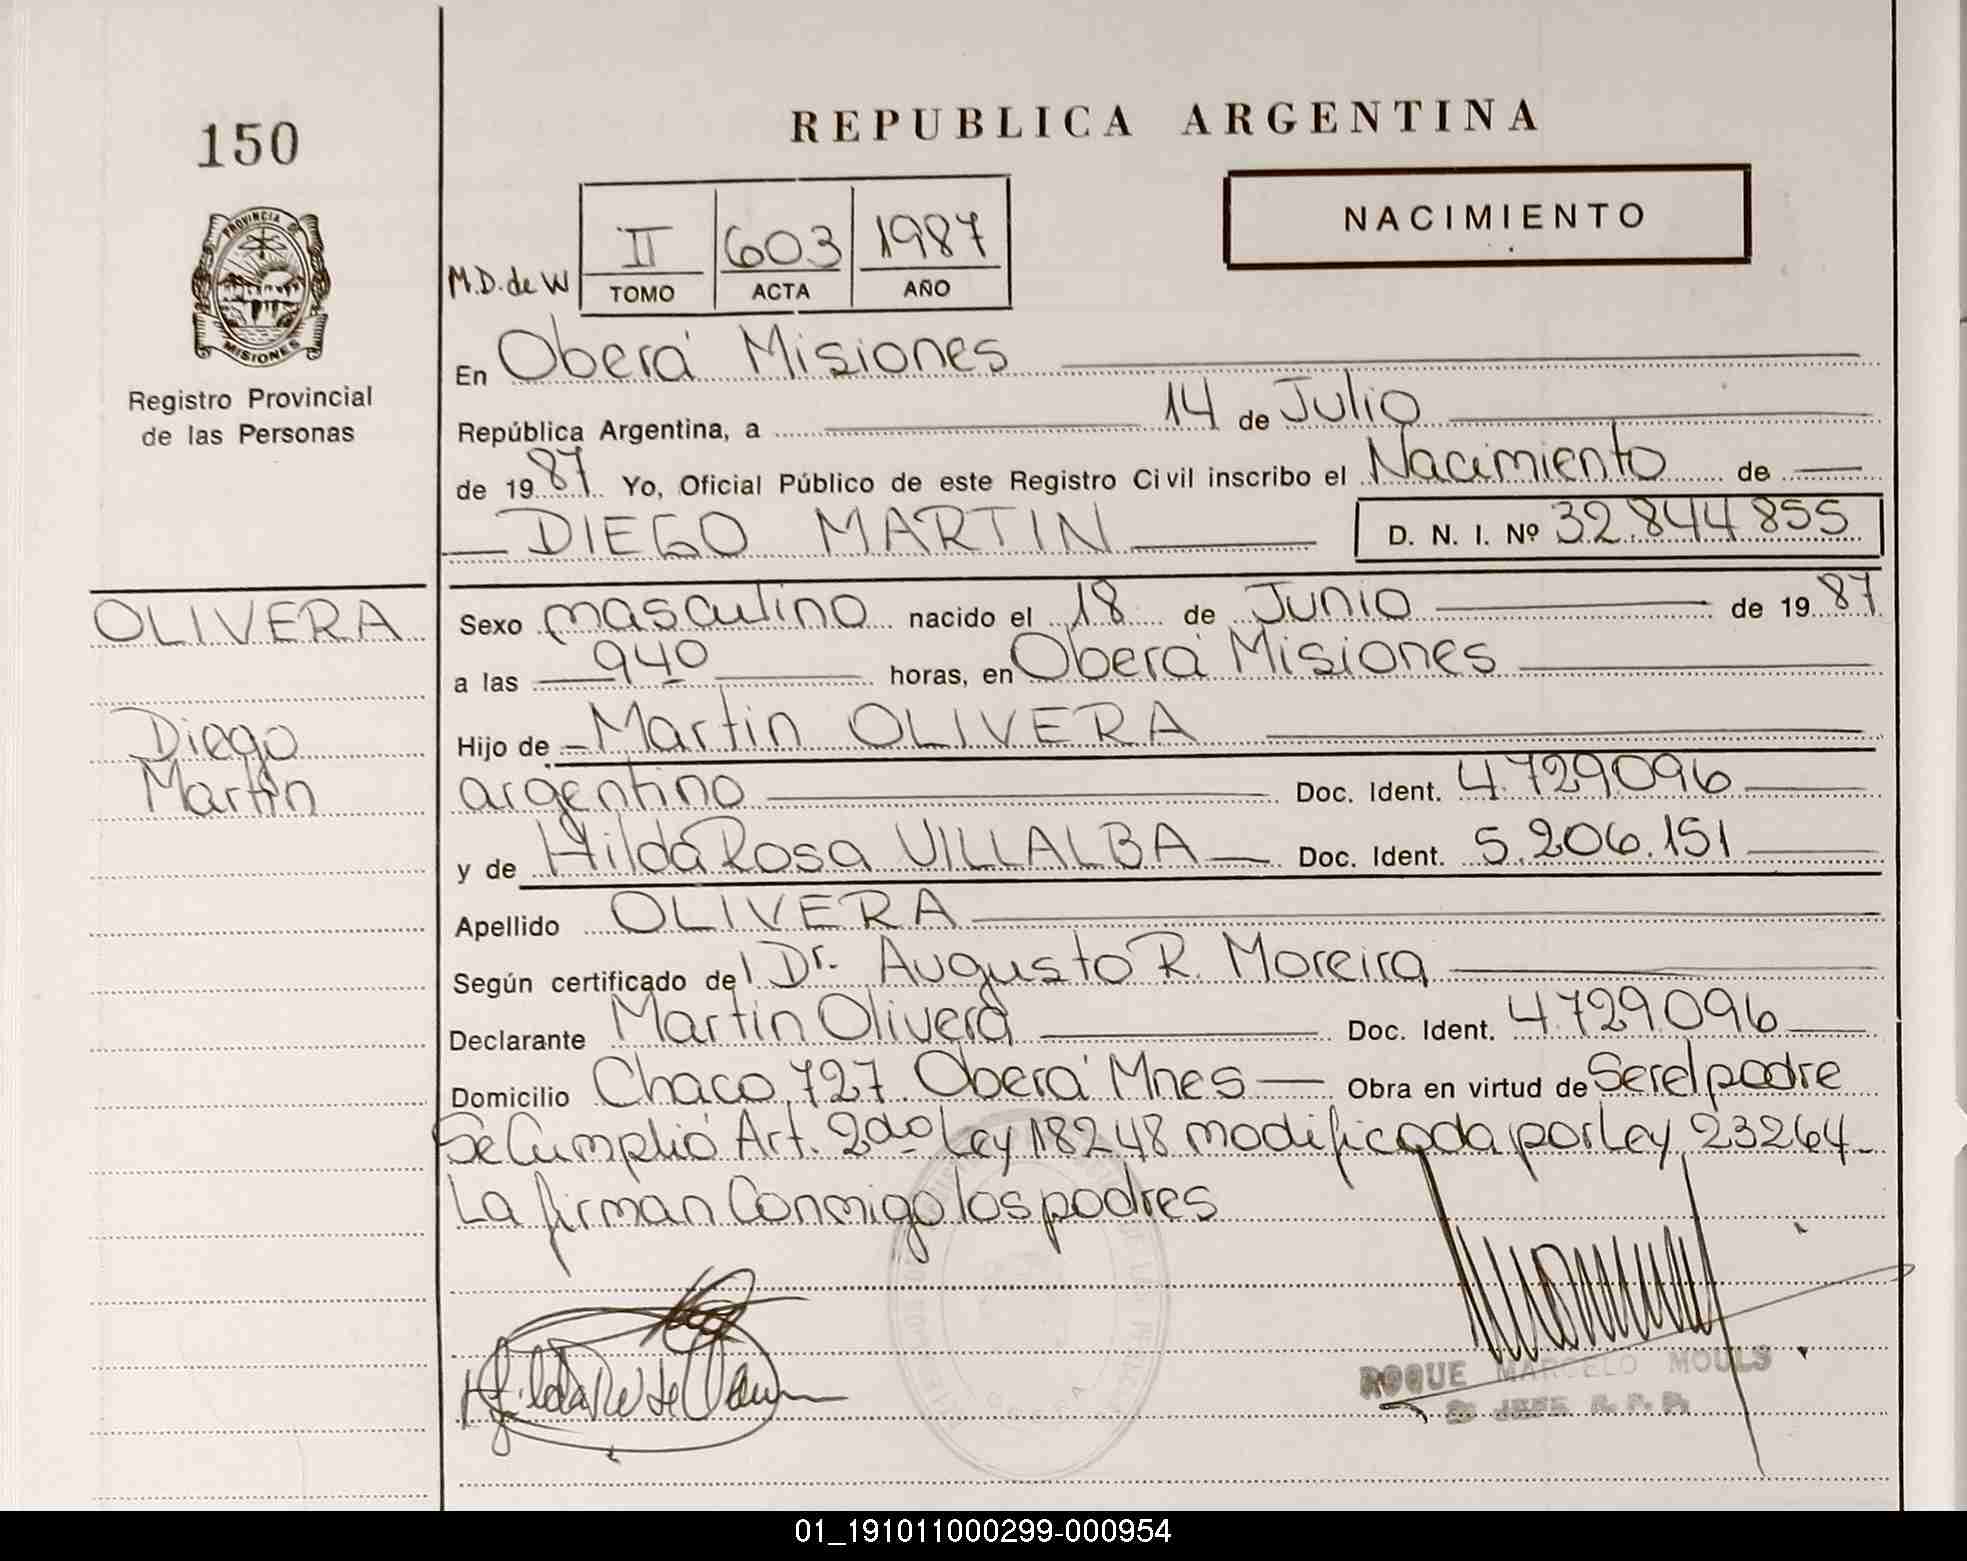 150
PROVINCIA
MISIONES
Registro Provincial
de las Personas
REPUBLICA ARGENTINA
NACIMIENTO
M.D. de W
II 603 1987
TOMO ACTA AÑO
En Oberá Misiones
República Argentina, a 14 de Julio
de 1987 Yo, Oficial Público de este Registro Civil inscribo el Nacimiento de
DIEGO MARTIN D. N. I. Nº 32.844.855
OLIVERA
Diego
Martín
Sexo masculino nacido el 18 de Junio de 1987
a las 940 horas, en Oberá Misiones
Hijo de Martin OLIVERA
argentino Doc. Ident. 4.729096
y de Hilda Rosa VILLALBA Doc. Ident. 5.206.151
Apellido OLIVERA
Según certificado del Dr. Augusto R. Moreira
Declarante Martin Olivera Doc. Ident. 4.729.096
Domicilio Chaco 727 Oberá Mnes Obra en virtud de Ser el padre
Se Cumplió Art. 2do Ley 18248 modificada por Ley 23264
La firman Conmigo los padres
ROQUE MARCELO MOULS
JEFE R. P. P.
01_191011000299-000954